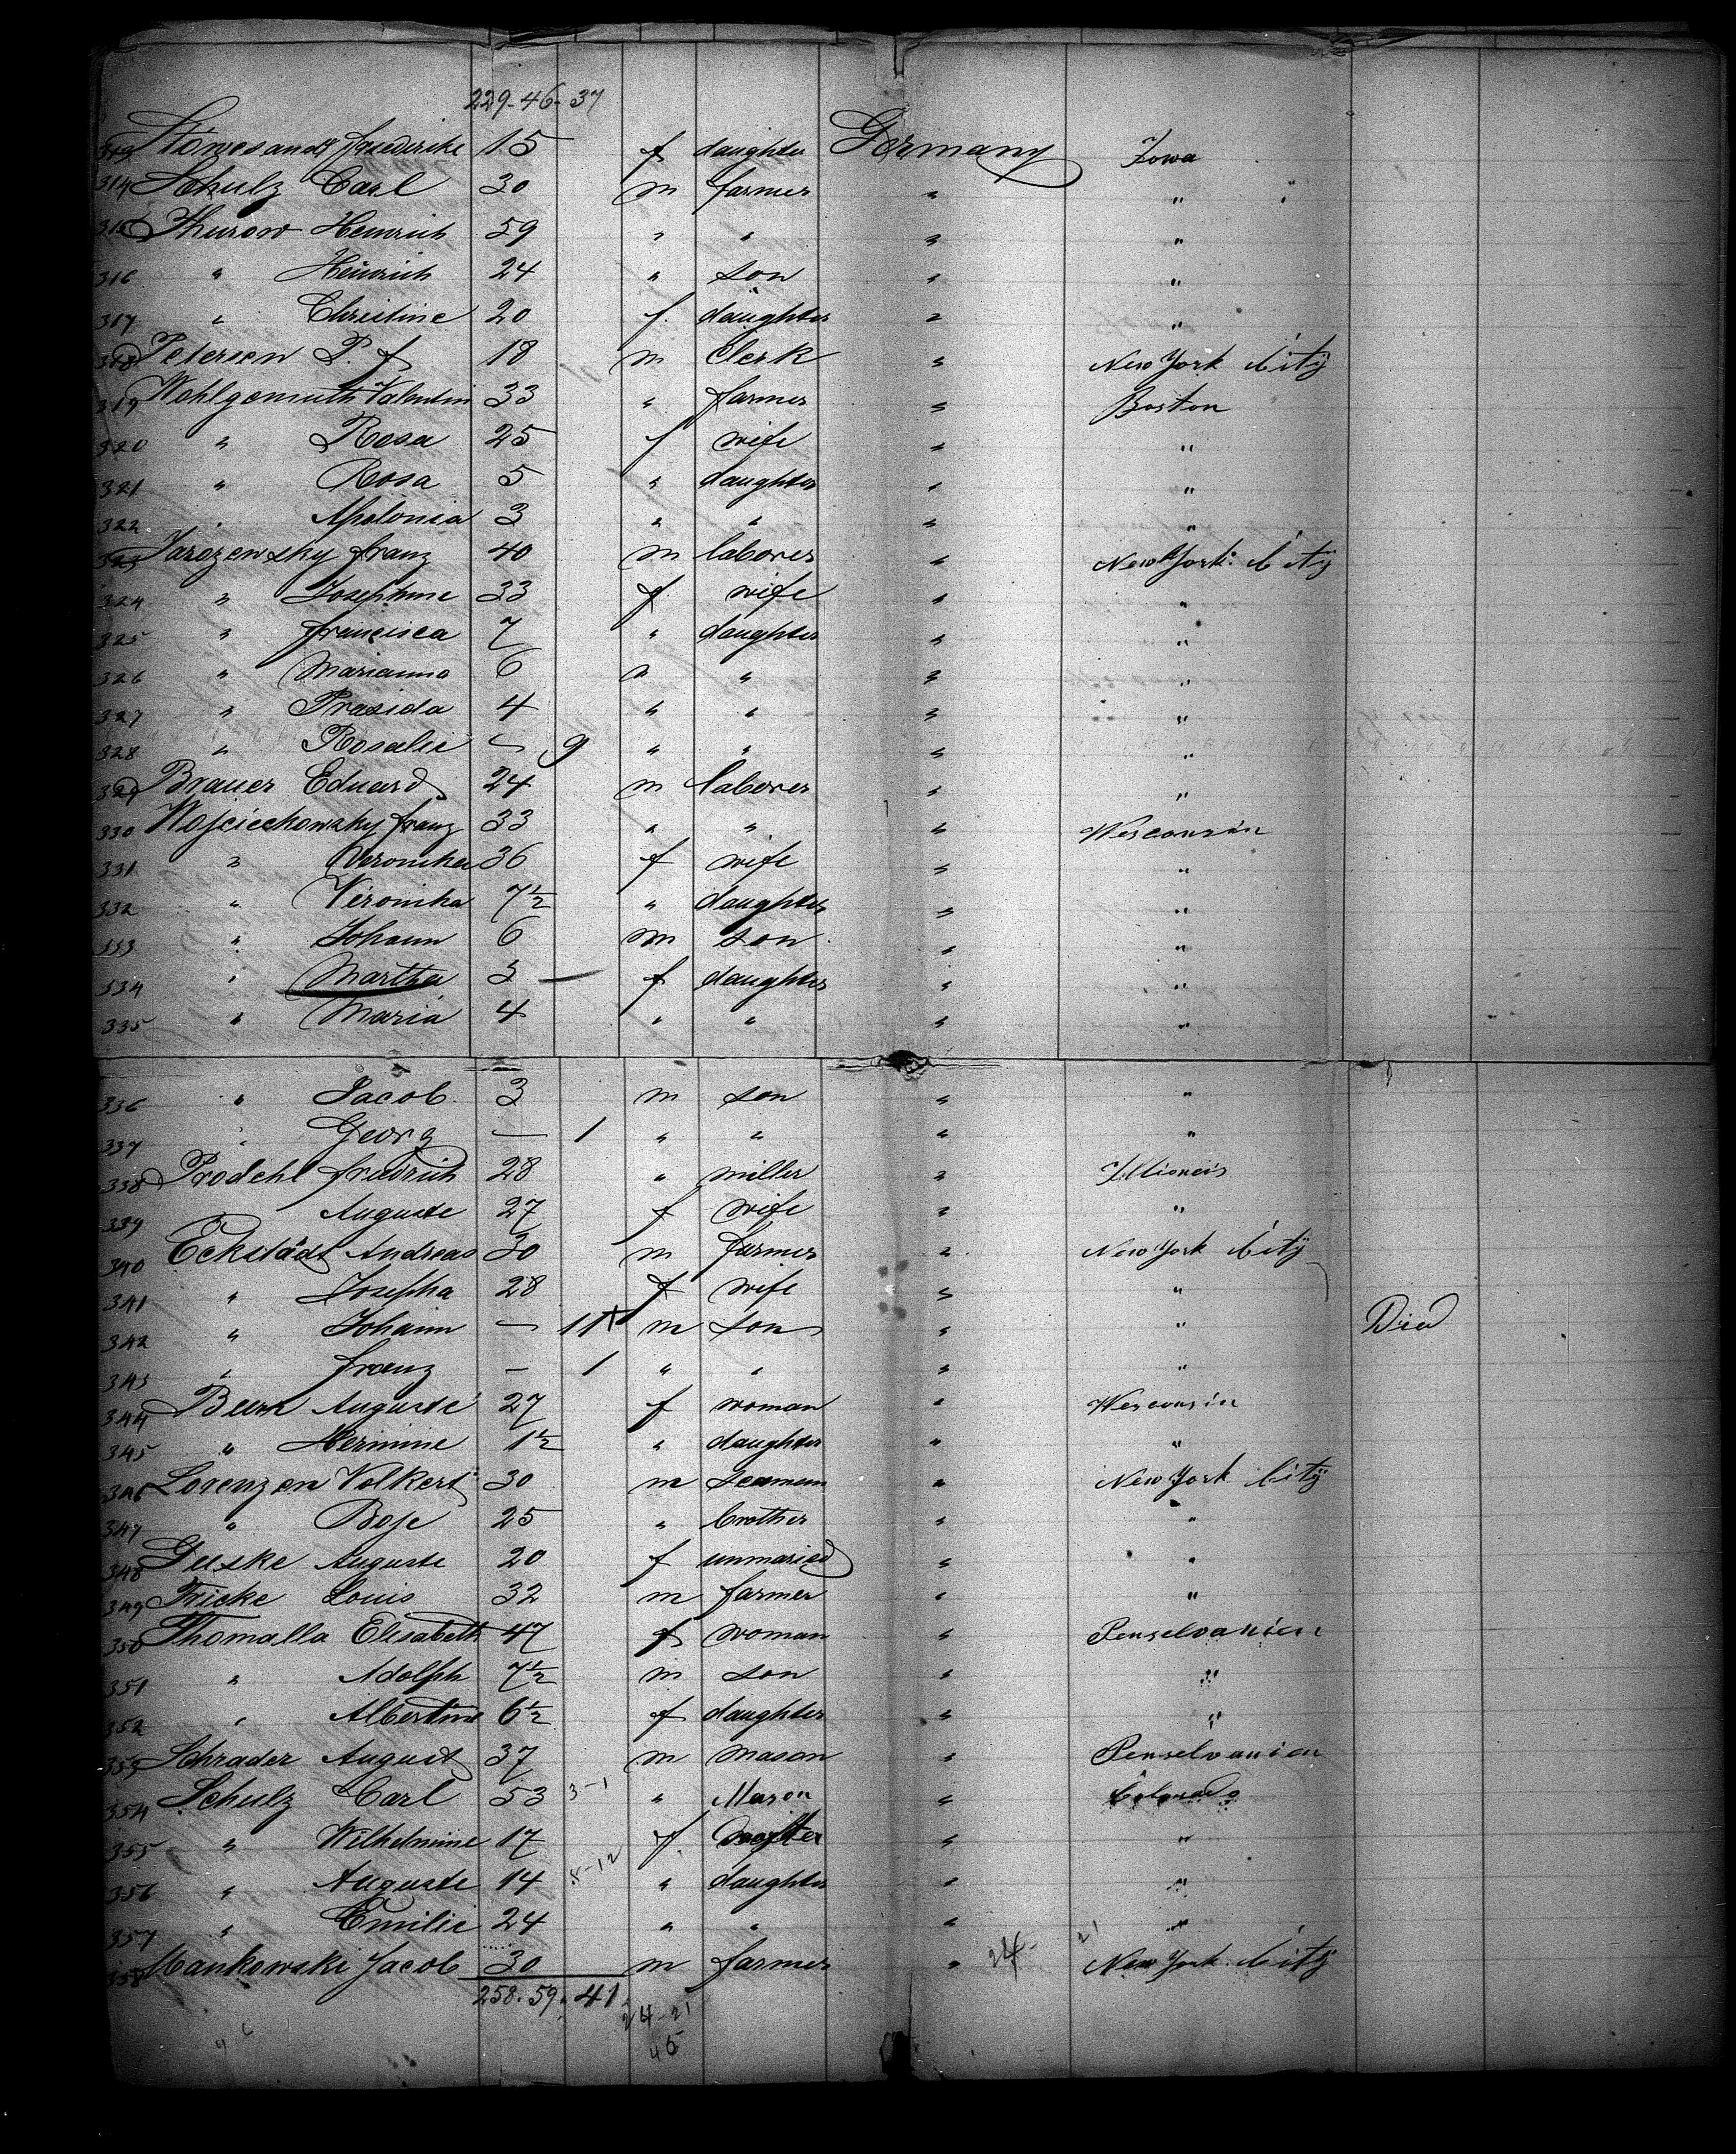 229-46-37
313 Stowesandt Friederike 15 f daughter Germany Iowa
314 Schulz Carl 30 m farmer " "
315 Thurow Heinrich 59 " " " "
316 " Heinrich 24 " son " "
317 " Christine 20 f. daughter " "
318 Petersen P. f 18 m Clerk " New York City
319 Wohlgemuth Valentin 33 " farmer " Boston
320 " Rosa 25 f wife " "
321 " Rosa 5 " daughter " "
322 " Apolonia 3 " " " "
323 Jarozewsky franz 40 m laborer " New York City
324 " Josephine 33 f wife " "
325 " francisca 7 " daughter " "
326 " Marianna 6 " " " "
327 " Prasida 4 " " " "
328 " Rosalie - 9 " " " "
329 Brauer Eduard 24 m laborer " "
330 Wojciechowsky franz 33 " " " Wesconsin
331 " Veronika 36 f wife " "
332 " Veronika 7½ " daughter " "
333 " Johann 6 m son " "
334 " Martha 5 - f daughter " "
335 " Maria 4 " " " "
336 " Jacob 3 m son " "
337 " Georg - 1 " " " "
338 Prodehl friedrich 28 " miller " Illioneis
339 Auguste 27 f wife " "
340 Eckstädt Andreas 30 m farmer " New York City
341 " Josepha 28 f wife " "
342 " Johann - 11 m son " " Died
343 " franz - 1 " " " "
344 Auguste 27 f woman " Wesconsin
345 " Hermine 1½ " daughter " "
346 Lorenzen Volkert 30 m seaman " New York City
347 " Boje 25 " brother " "
348 Auguste 20 f unmaried " "
349 Fricke Louis 32 m farmer " "
350 Thomalla Elisabeth 47 f woman " Penselvanien
351 " Adolph 7½ m son " "
352 " Albertine 6½ f daughter " "
353 Schrader August 37 m mason " Penselvanien
354 Schulz Carl 53 3-1 " Mason " Colorado
355 " Wilhelmine 17 f " "
356 " Auguste 14 " daughter " "
357 " Emilie 24 " " " "
358 Mankowski Jacob 30 m farmer " 24- 21 New York City
258. 59. 41
24-21
45